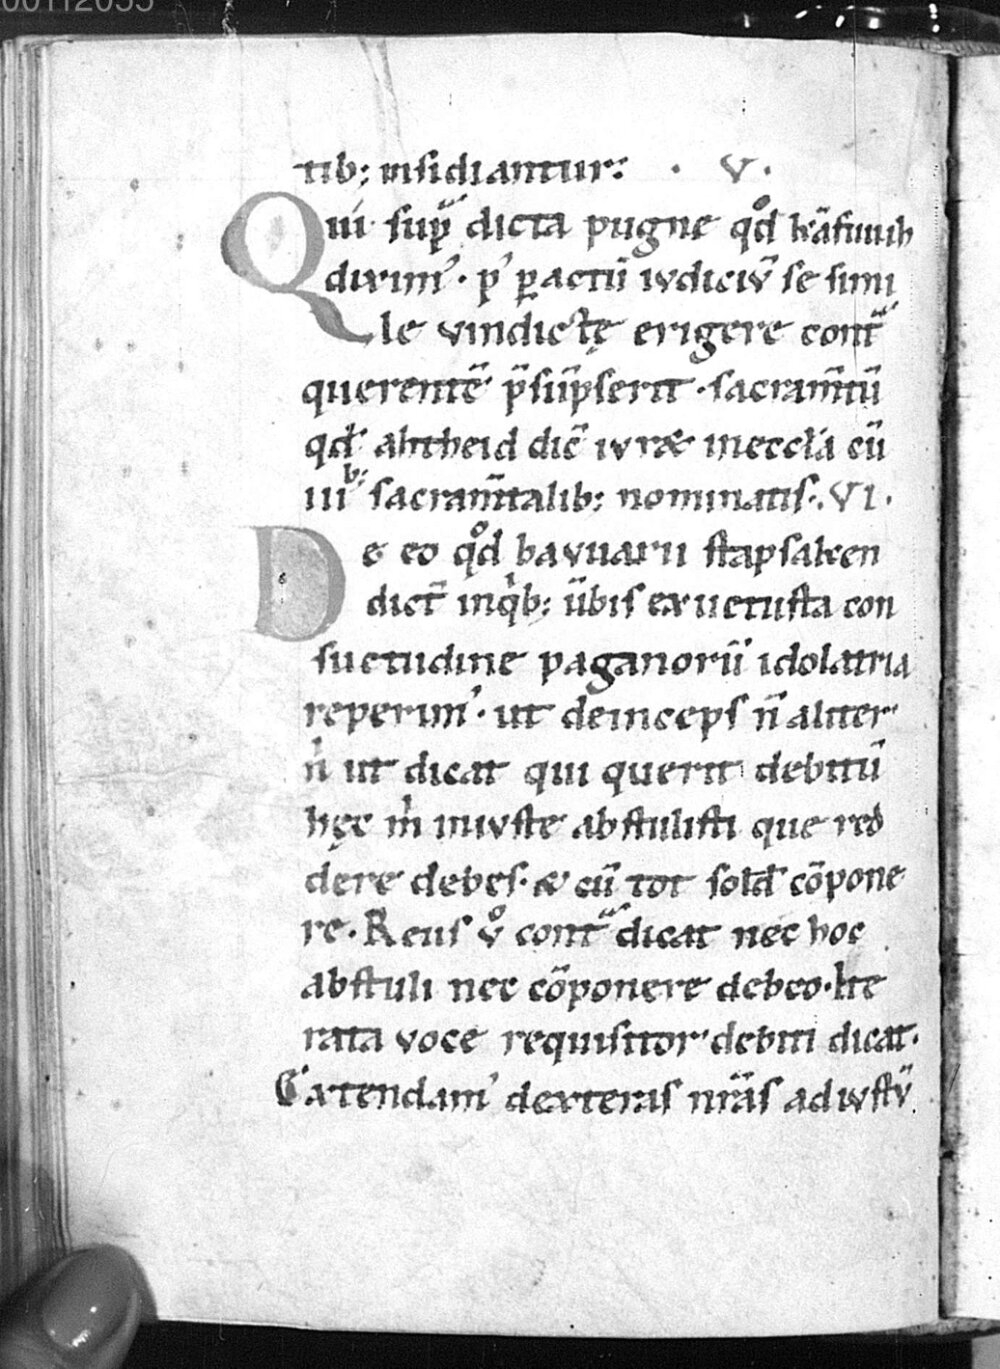 tib; insidiantur: · V·
Qui sup̄ dicta pugne qd̊ kāfiuuih
dixim᾽· p᾽ ꝑactū ivdiciv̄ se simi
le vindictę erigere contᷓ
querentē p̄sūpserit · sacram̄tū
qđ ahtheid dic̄ ivr& ineccl̄a cū
iii sacram̄talib; nominatis·. VI·
De eo qd̊ bavuarii stapsaken
dict̄ inqͥb; ūbis ex uetusta con
suetudine paganorū idolatria
reperim᾽· ut deinceps n̄ aliter
nͥ ut dicat qui querit debitū
hęc mͥ inivste abstulisti que red
dere debes· & cū tot sold̄ cōpone
re· Reus v̊ contᷓdicat nec hoc
abstuli nec cōponere debeo· Ite
rata voce requisitor debiti dicat·
Extendam᾽ dexteras nr̄as ad ivstv̄